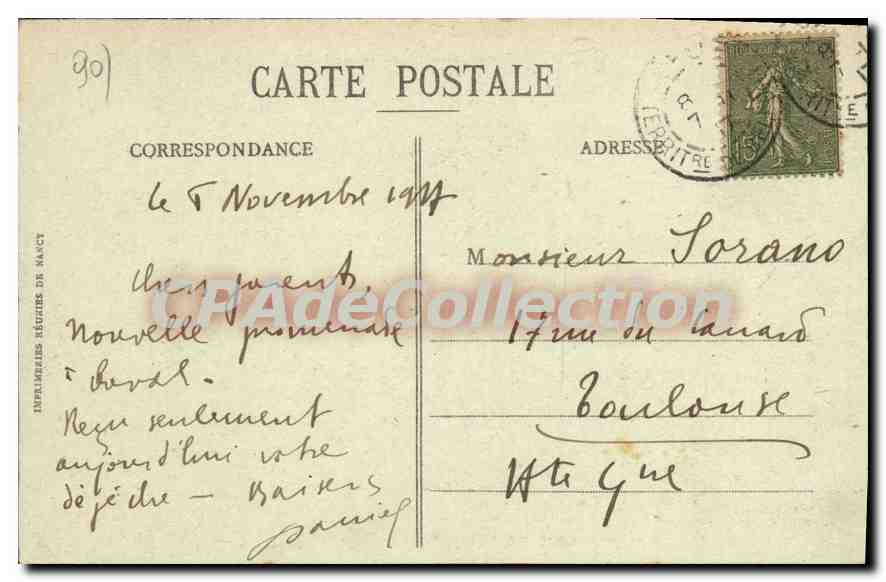 90)
CARTE POSTALE
CORRESPONDANCE
ADRESSE
TERRITRE
15
Le 5 Novembre 19
Chers parents,
Nouvelle promenade
à cheval.
Reçu seulement
aujourd'hui votre
dépêche — Baisers
Daniel
Monsieur Sorano
17 rue du Canard
Toulouse
Hte Gne
IMPRIMERIES RÉUNIES DE NANCY
CPAdeCollection.com